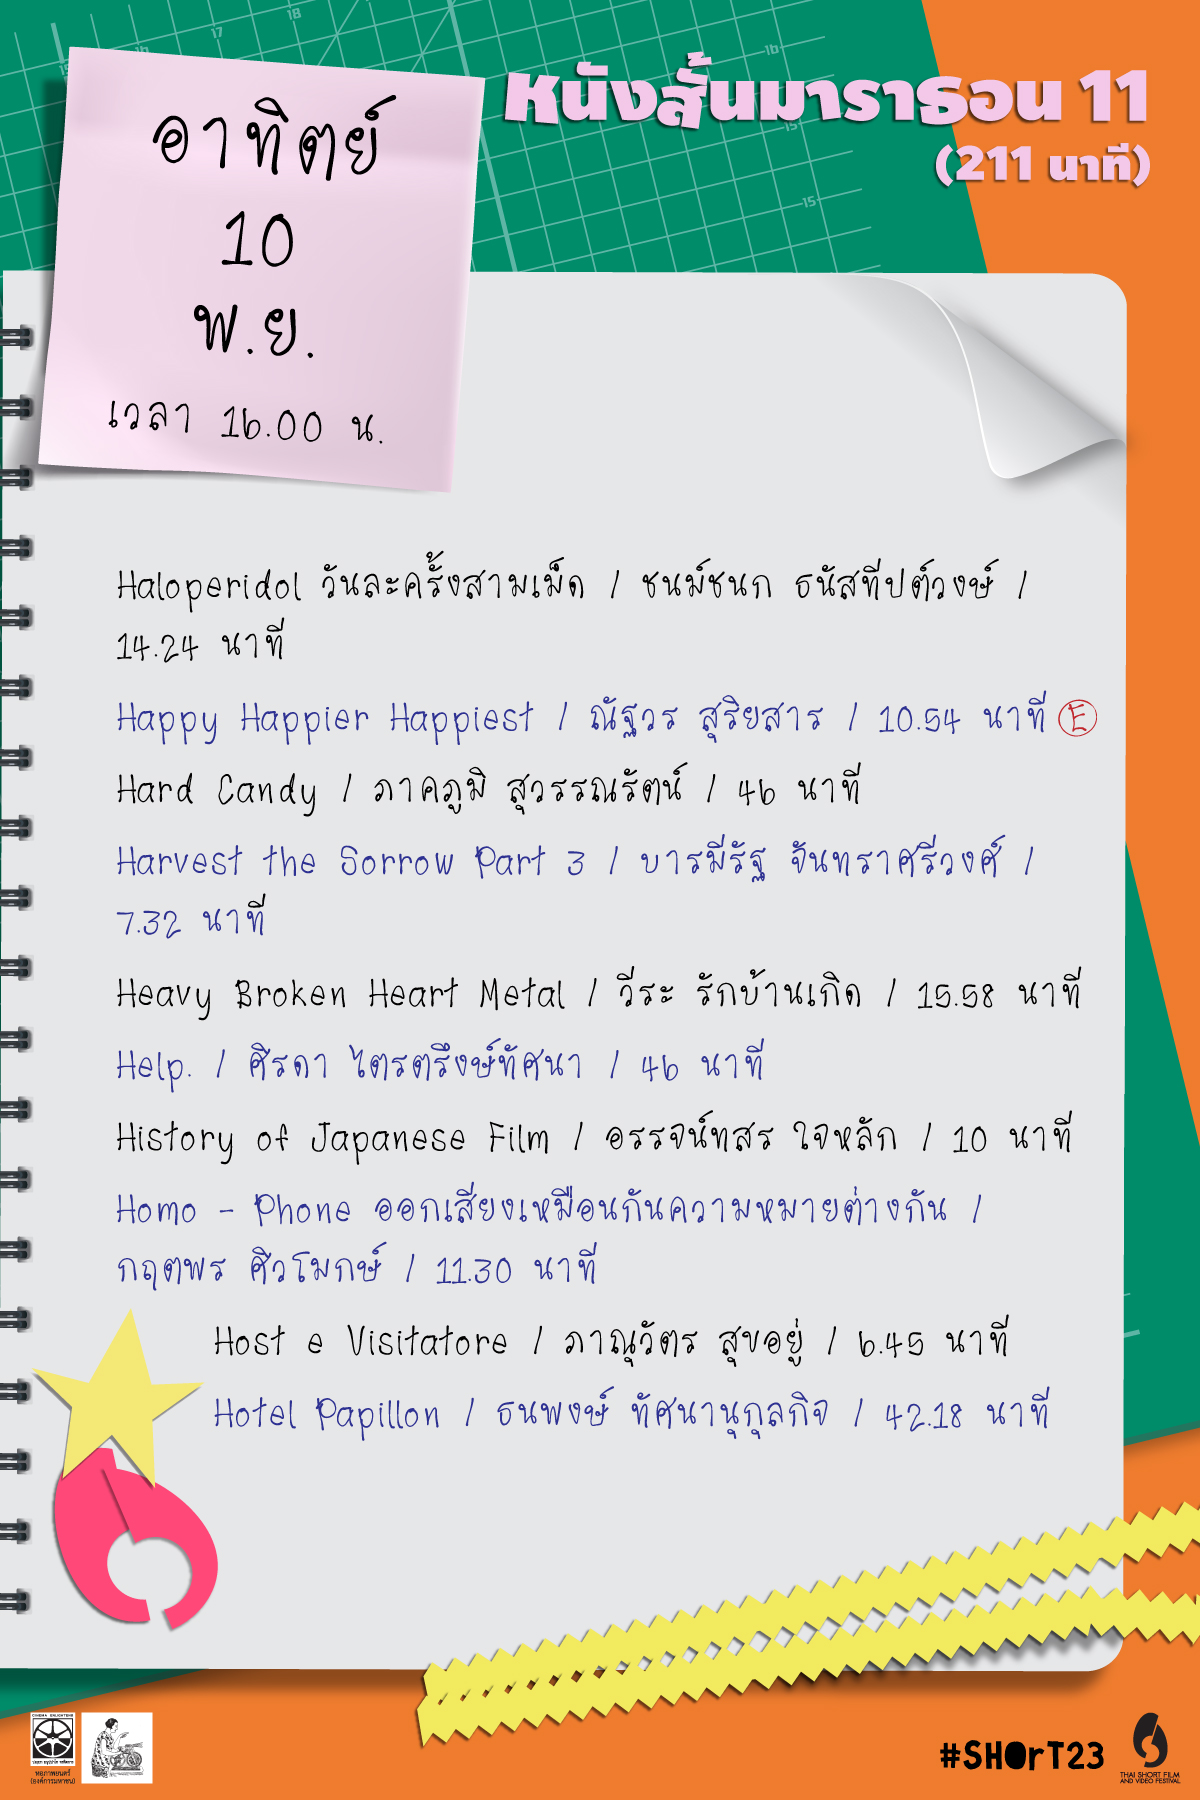 หนังสั้นมาราธอน 11
(211 นาที)
อาทิตย์
10
พ.ย.
เวลา 16.00 น.
Haloperidol วันละครั้งสามเม็ด / ชนม์ชนก ธนัสทีปต์วงษ์ /
14.24 นาที
Happy Happier Happiest / ณัฐวร สุริยสาร / 10.54 นาที E
Hard Candy / ภาคภูมิ สุวรรณรัตน์ / 46 นาที
Harvest the Sorrow Part 3 / บารมีรัฐ จันทราศรีวงศ์ /
7.32 นาที
Heavy Broken Heart Metal / วีระ รักบ้านเกิด / 15.58 นาที
Help. / ศิรดา ไตรตรึงษ์ทัศนา / 46 นาที
History of Japanese Film / อรรจน์ทสร ใจหลัก / 10 นาที
Homo - Phone ออกเสียงเหมือนกันความหมายต่างกัน /
กฤตพร ศิวโมกษ์ / 11.30 นาที
Host e Visitatore / ภาณุวัตร สุขอยู่ / 6.45 นาที
Hotel Papillon / ธนพงษ์ ทัศนานุกุลกิจ / 42.18 นาที
หอภาพยนตร์
(องค์การมหาชน)
#SHOrT23
THAI SHORT FILM
AND VIDEO FESTIVAL
16
17
18
16
15
15
CINEMA ENLIGHTENS